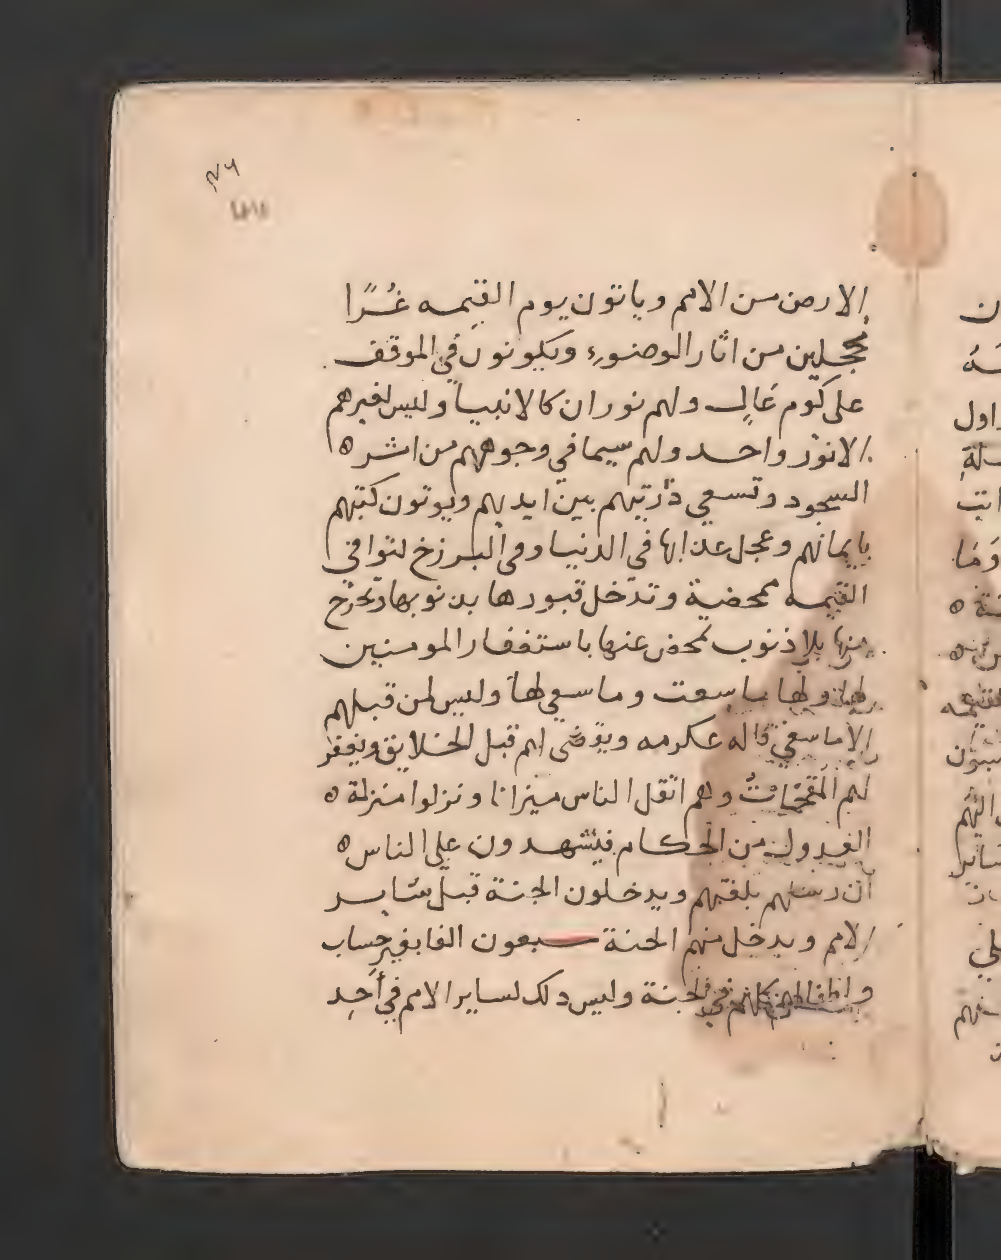 الارض من الامم وياتون يوم القيمه غُرًّا
محجلين من اثار الوضوء ويكونون في الموقف
على كوم عَالٍ ولهم نوران كالانبيا وليس لغيرهم
الا نور واحد ولهم سيما في وجوههم من اثر ه
السجود وتسعي ذريتهم بين ايديهم ويوتون كتبهم
بايمانهم وعجل عذابها في الدنيا وفي البرزخ لتوافي
القيمه ممحضية وتدخل قبورها بذنوبها وتخرج
منها بلا ذنوب تمحض عنها باستغفار المومنين
لها ولها ما سعت وما سعي لها وليس لمن قبلهم
الا ما سعي قاله عكرمه ويقضى لهم قبل الخلايق ويغفر
لهم المقحمات وهم اثقل الناس ميزانا ونزلوا منزلة ه
العدول من الحكام فيشهدون على الناس ه
ان رسلهم بلغتهم ويدخلون الجنة قبل سَاير
الامم ويدخل منهم الجنة سبعون الفا بغير حساب
واطفالهم كلهم في الجنة وليس ذلك لساير الامم في أحد